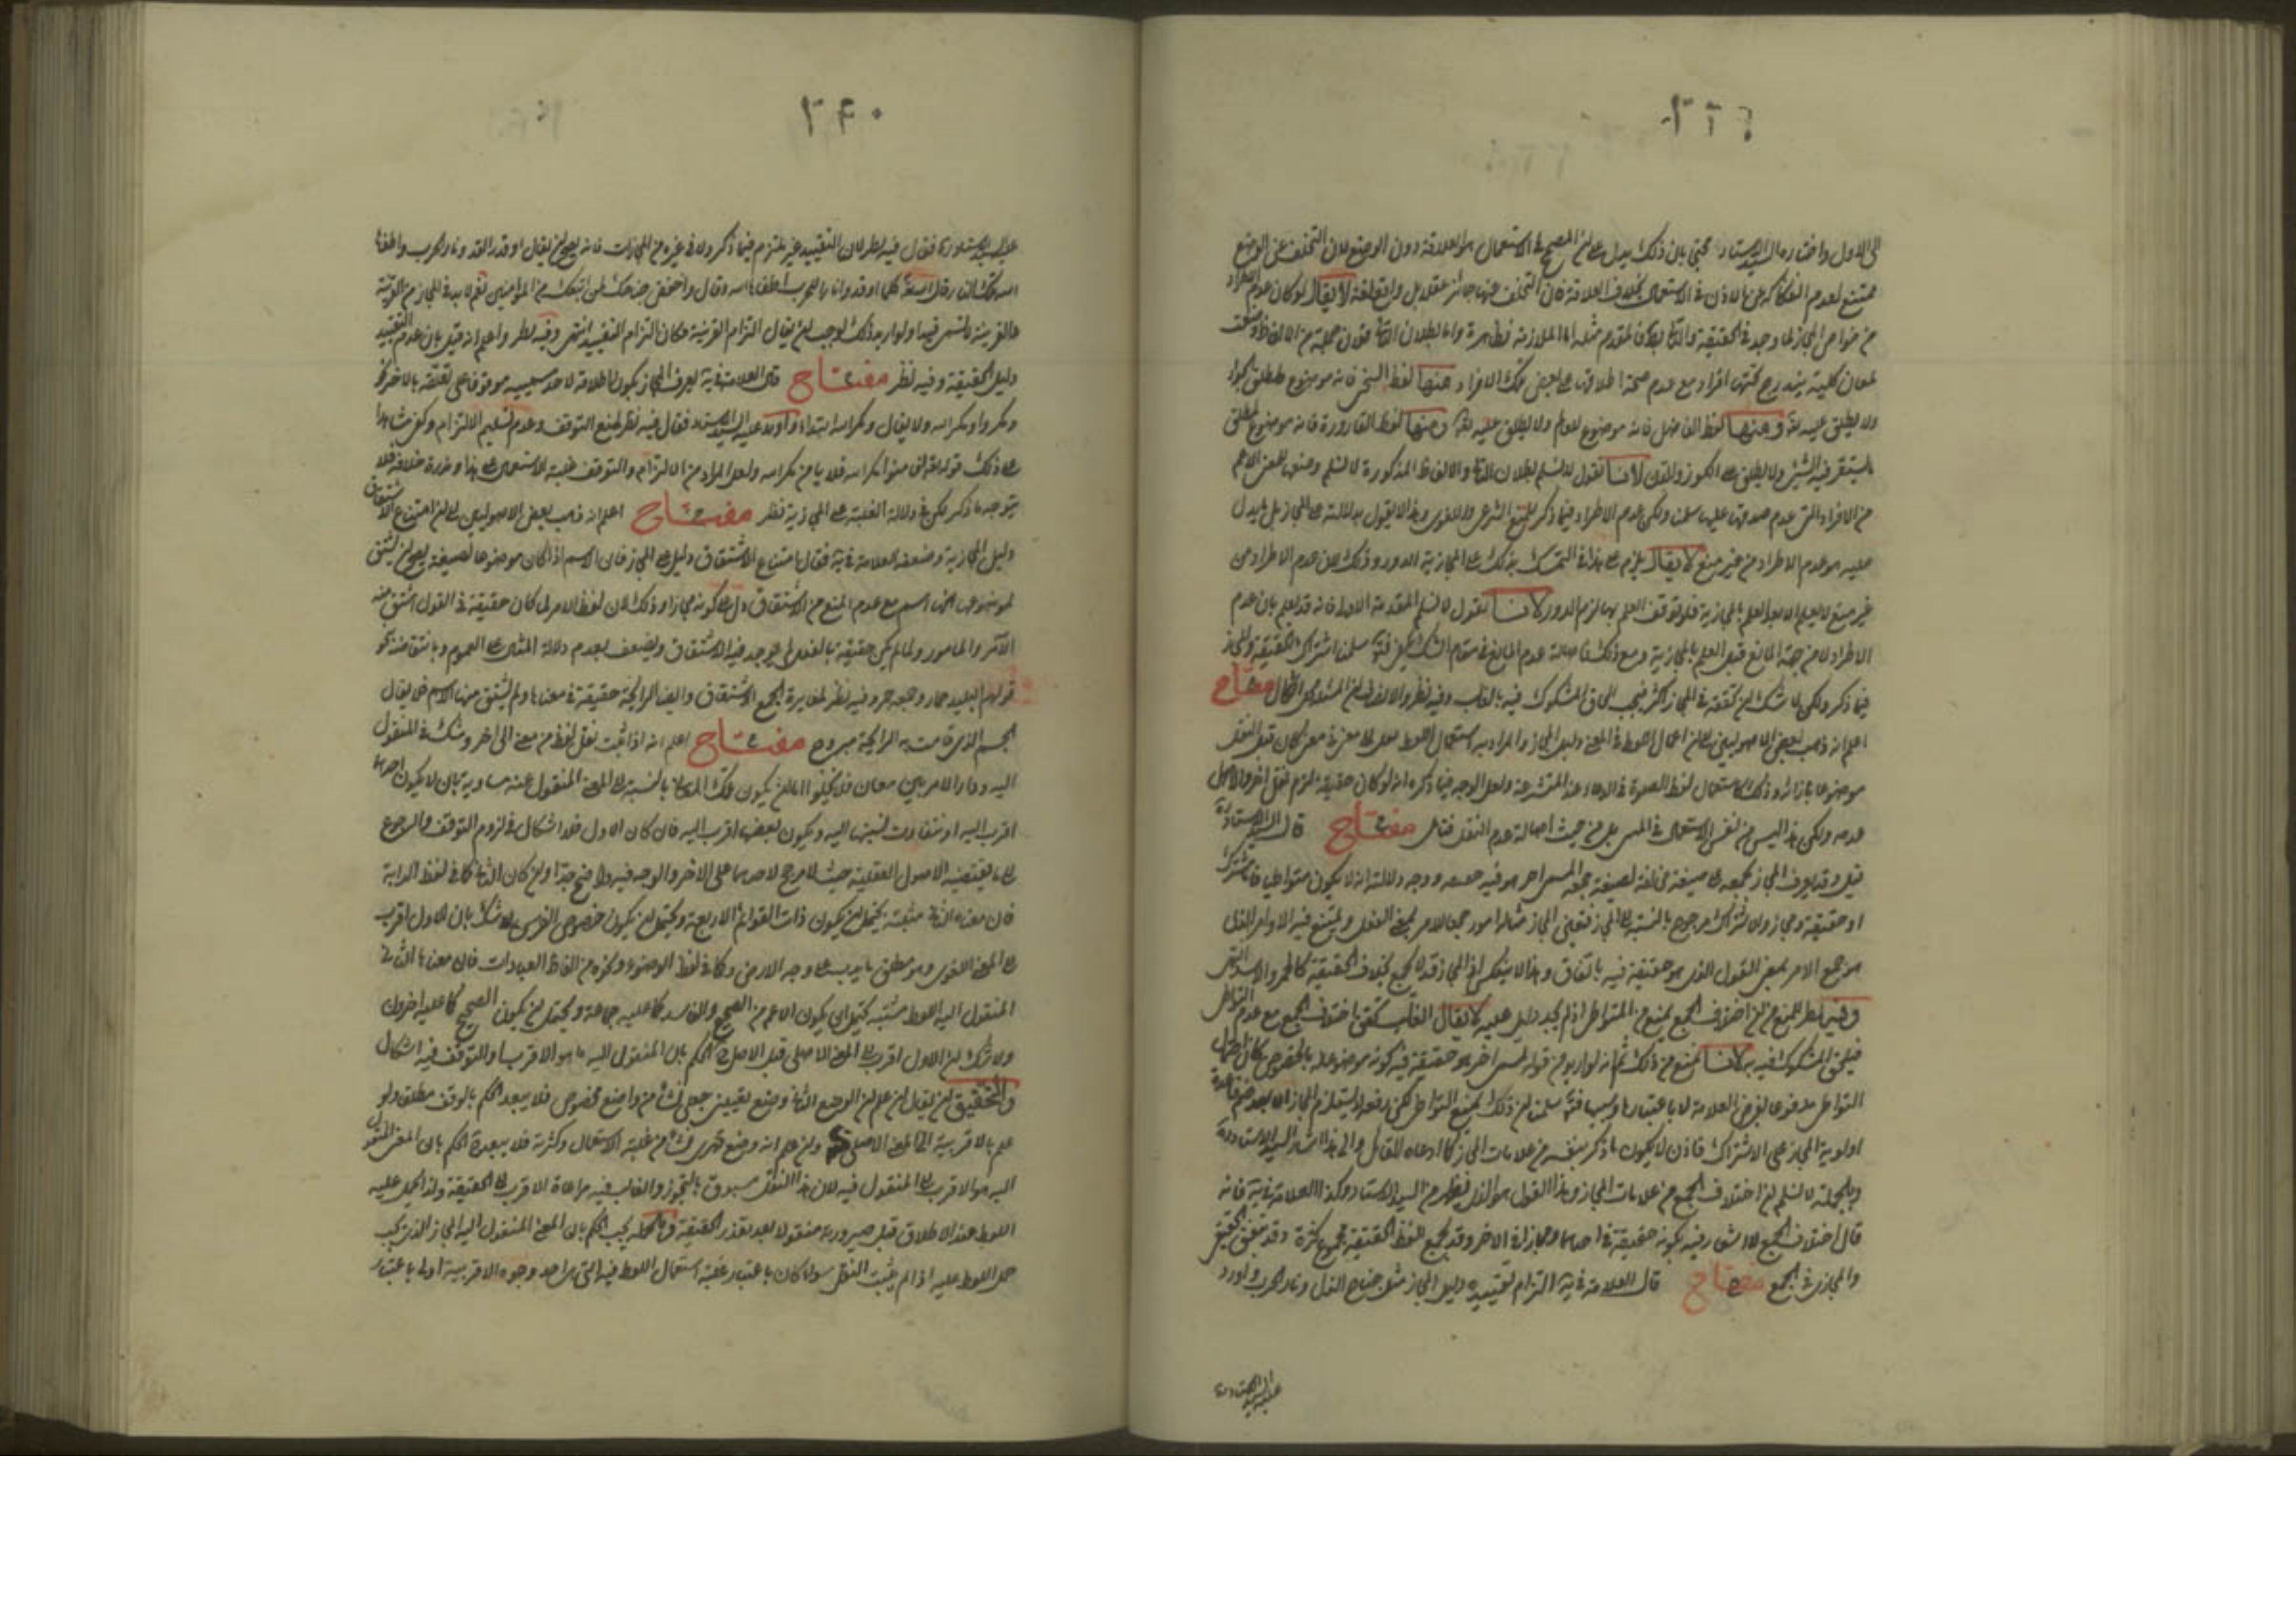 الى الاول واختاره السيد الاستاد محتج بان ذلك يدل على ان المصحح فى الاستعمال هو العلاقة دون الوضع لان التخلف عن الوضع
ممتنع لعدم انفكاكه عن الاذن فى الاستعمال بخلاف العلاقة فان التخلف عنها جائز عقلا بل واقع لغة لا يقال لو كان عدم الاطراد
من خواص المجاز لما وجد فى الحقيقة والتالى باطل فالمقدم مثله اما الملازمة فظاهرة واما بطلان التالى فلان جملة من الالفاظ وضعت
لمعان كلية يندرج تحتها افراد مع عدم صحة اطلاقها على بعض تلك الافراد منها لفظ السخى فانه موضوع لمطلق الجواد
ولا يطلق عليه تعالى ومنها لفظ الفاضل فانه موضوع للعالم ولا يطلق عليه تعالى ومنها لفظ القارورة فانه موضوع لمطلق
ما يستقر فيه الشىء ولا يطلق على الكوز والدن لانا نقول لا نسلم بطلان التالى والالفاظ المذكورة لا نسلم وضعها للمعنى الاعم
من الافراد التى عدم صدقها عليها سلمنا ولكن عدم الاطراد فيما ذكر للمنع الشرعى واللغوى وهذا لا يقول بدلالته على المجاز بل ما يدل
عليه هو عدم الاطراد من غير منع لا يقال يلزم على هذا فى التمسك بذلك على المجازية الدور وذلك لان عدم الاطراد من
غير منع لا يعلم الا بعد العلم بالمجازية فلو توقف العلم بها لزم الدور لانا نقول لا نسلم المقدمة الاولى فانه قد يعلم بان عدم
الاطراد لا من جهة المانع قبل العلم بالمجازية ومع ذلك فاصالة عدم المانع فى مقام الشك يكفى فتأمل سلمنا اشتراك الحقيقة والمجاز
فيما ذكر ولكن لا شك ان تحققه فى المجاز اكثر فيجب الحاق المشكوك فيه بالغالب وفيه نظر والانصاف ان المسئلة محل اشكال مفتاح
اعلم انه ذهب بعض الاصوليين الى ان اعمال اللفظ فى المعنى دليل المجاز والمراد به استعمال اللفظ فى معنى كان قبل النقل
موضوعا بازائه وذلك كاستعمال لفظ الصلوة فى الدعاء عند المتشرعة ولعل الوجه فيما ذكره انه لو كان حقيقة لزم نقل اخر والاصل
عدمه ولكن هذا ليس من نفس الاستعمال فى المنسى بل من حيث اصالة عدم النقل فتأمل مفتاح قال السيد الاستاد ره
قيل وقد يعرف المجاز بجمعه على صيغة مخالفة لصيغة جمعه لمسمى اخر هو فيه حقيقة ووجه دلالته انه لا يكون متواطيا فاما مشترك
او حقيقة ومجاز والاشتراك مرجوح بالنسبة الى المجاز فتعين المجاز مثاله امور جمعا لامر بمعنى الفعل ويمتنع فيه الاوامر الذى
هو جمع الامر بمعنى القول الذى هو حقيقة فيه باتفاق وهذا لا ينعكس اذ المجاز قد لا يجمع بخلاف الحقيقة كالحمر والاسد انتهى
وفيه نظر للمنع من ان اختلاف الجمع يمنع من التواطى اذ لم نجد دليلا عليه لا يقال الغالب تحقق اختلاف الجمع مع عدم التواطى
فيلحق المشكوك فيه به لانا نمنع من ذلك ثم انه لو اريد من قوله لمسمى اخر هو حقيقة فيه كونه موضوعا له بالخصوص كان احتمال
التواطى مدفوعا بفرض العلامة لا باعتبارها وسببها فتأمل سلمنا ان ذلك يمنع التواطى لكن رفعه لا يستلزم المجاز الا بعد ضم قاعدة
اولوية المجاز على الاشتراك فاذن لا يكون ما ذكر بنفسه من علامات المجاز كما ادعاه القائل والى هذا اشار السيد الاستاد ره
وبالجملة لا نسلم ان اختلاف الجمع من علامات المجاز وهذا القول هو الذى يظهر من السيد الاستاد وكذا العلامة فى يه فانه
قال اختلاف الجمع لا اشعار فيه بكونه حقيقة فى احدهما ومجازا فى الاخر وقد يجمع لفظ الحقيقة بجموع كثيرة وقد يتفق الحقيقى
والمجازى فى الجمع مفتاح قال العلامة فى يه التزام تقييده دليل المجاز مثل جناح الذل ونار الحرب واورد
عليه السيد الاستاد ره
٣٤٠
عليه السيد الاستاد ره فقال فيه نظر لان التقييد غير ملتزم فيما ذكر ولا فى غيره من المجازات فانه يصح ان يقال اوقد القدر ونار الحرب واطفأ
الله تلك النار وقال الله تعالى كلما اوقدوا نارا للحرب اطفأها الله وقال واخفض جناحك لمن اتبعك من المؤمنين نعم لا بد فى المجاز من القرينة
والقرينة ملتزمة فيها ولو اريد ذلك لوجب ان يقال التزام القرينة مكان التزام التقييد انتهى وفيه نظر واعلم انه قيل بان عدم التقييد
دليل الحقيقة وفيه نظر مفتاح قال العلامة فى يه يعرف المجاز بكون اطلاقه لاحد مسمييه موقوفا على تعلقه بالاخر نحو
ومكروا ومكر الله ولا يقال ومكر الله ابتداء واورد عليه السيد الاستاد فقال فيه نظر لمنع التوقف وعدم تسليم الالتزام وكفى شاهدا
على ذلك قوله تعالى افامنوا مكر الله فلا يامن مكر الله ولعل المراد من الالتزام والتوقف غلبة الاستعمال على هذا وندرة خلافه فلا
يتوجه ما ذكر لكن فى دلالة الغلبة على المجازية نظر مفتاح اعلم انه ذهب بعض الاصوليين الى ان امتناع الاشتقاق
دليل المجازية وضعفه العلامة فى يه فقال امتناع الاشتقاق دليل على المجاز فان الاسم اذا كان موضوعا لصفة يصح ان يشتق
لموضوعها منها اسم مع عدم المنع من الاشتقاق دل على كونه مجازا وذلك لان لفظ الامر لما كان حقيقة فى القول اشتق منه
الآمر والمأمور ولما لم يكن حقيقة بالفعل لم يوجد فيه الاشتقاق ويضعف بعدم دلالة المثال على العموم وبانتقاضه نحو
قولهم للبليد حمار وجمعه حمر وفيه نظر لمغايرة الجمع الاشتقاق وايضا الرايحة حقيقة فى معناها ولم يشتق منها الاسم فلا يقال
الجسم الذى قامت به الرايحة متروح مفتاح اعلم انه اذا ثبت نقل لفظ من معنى الى اخر وشك فى المنقول
اليه ودار الامر بين معان فلا يخلو اما ان يكون تلك المعانى بالنسبة الى المعنى المنقول عنه مساوية بان لا يكون احدها
اقرب اليه او تتفاوت نسبتها اليه ويكون بعضها اقرب اليه فان كان الاول فلا اشكال فى لزوم التوقف والرجوع
الى ما يقتضيه الاصول العقلية حيث لا مرجح لاحدها على الاخر والوجه فيه واضح جدا وان كان الثانى كما فى لفظ الدابة
فان معناه الثانى مشتبه يحتمل ان يكون ذات القوائم الاربعة ويحتمل ان يكون خصوص الفرس ولا شك بان الاول اقرب
الى المعنى اللغوى وهو مطلق ما يدب على وجه الارض وكما فى لفظ الوضوء ونحوه من الفاظ العبادات فان معناها الثانى
المنقول اليه اللفظ مشتبه يحتمل ان يكون الاعم من الصحيح والفاسد كما عليه جماعة ويحتمل ان يكون الصحيح كما عليه اخرون
ولا شك ان الاول اقرب الى المعنى الاصلى فهل الاصل الحكم بان المنقول اليه ما هو الاقرب او التوقف فيه اشكال
والتحقيق ان يقال ان علم ان الوضع الثانى وضع تعيينى جعلى نشأ من واضع مخصوص فلا يبعد الحكم بالوقف مطلقا ولو
علم بالاقربية الى المعنى الاصلى وان علم انه وضع قهرى نشأ من غلبة الاستعمال وكثرته فلا يبعد الحكم بان المعنى المنقول
اليه هو الاقرب الى المنقول فيه لان هذا النقل مسبوق بالتجوز والغالب فيه مراعاة الاقرب الى الحقيقة ولذا يحمل عليه
اللفظ عند الاطلاق قبل صيرورته منقولا بعد تعذر الحقيقة وبالجملة يجب الحكم بان المعنى المنقول اليه المجاز الذى يجب
حمل اللفظ عليه اذا لم يثبت النقل سواء كان باعتبار غلبة استعمال اللفظ فيه التى هى احد وجوه الاقربية او باعتبار